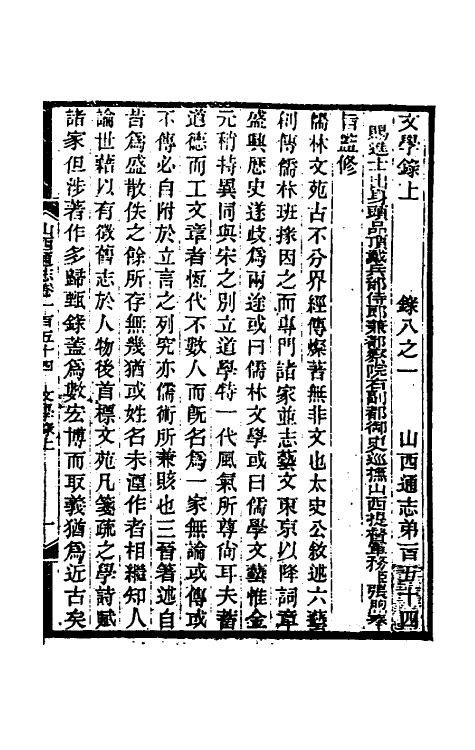 文學錄上　錄八之一　山西通志第一百五十四
賜進士出身頭品頂戴兵部侍郎兼都察院右副都御史巡撫山西提督軍務張煦奉
旨監修
儒林文苑古不分界經傳燦著無非文也太史公敘述六藝
創傳儒林班掾因之而專門諸家並志藝文東京以降詞章
盛興歷史遂歧為兩途或曰儒林文學或曰儒學文藝惟金
元稍特異同與宋之別立道學特一代風氣所尊尙耳夫蓄
道德而工文章者恆代不數人而旣名為一家無論或傳或
不傳必自附於立言之列究亦儒術所兼賅也三晉著述自
昔為盛散佚之餘所存無幾猶或姓名未湮作者相繼知人
論世藉以有徵舊志於人物後首標文苑凡箋疏之學詩賦
諸家但涉著作多歸甄錄蓋為數宏博而取義猶為近古矣
山西通志卷一百五十四　文學錄上　一